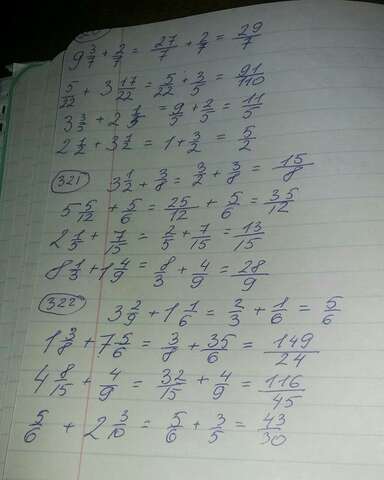 9 3/7 + 2/7 = 27/7 + 2/7 = 29/7
5/22 + 3 17/22 = 5/22 + 3/5 = 91/110
3 3/5 + 2 1/5 = 9/5 + 2/5 = 11/5
2 1/2 + 3 1/2 = 1 + 3/2 = 5/2
321 3 1/2 + 3/8 = 3/2 + 3/8 = 15/8
5 5/12 + 5/6 = 25/12 + 5/6 = 35/12
2 1/5 + 7/15 = 2/5 + 7/15 = 13/15
8 1/3 + 1 4/9 = 8/3 + 4/9 = 28/9
322 3 2/9 + 1 1/6 = 2/3 + 1/6 = 5/6
1 3/8 + 7 5/6 = 3/8 + 35/6 = 149/24
4 8/15 + 4/9 = 32/15 + 4/9 = 116/45
5/6 + 2 3/10 = 5/6 + 3/5 = 43/30